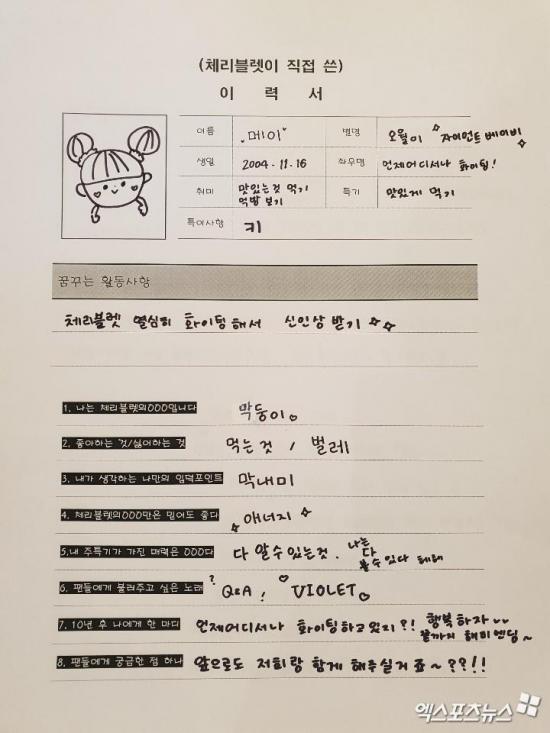 (체리블렛이 직접 쓴)
이 력 서
이름 메이 별명 오월이 자이언트베이비
생일 2004.11.16 좌우명 언제어디서나 화이팅!
취미 맛있는것 먹기 먹방보기 특기 맛있게 먹기
특이사항 키
꿈꾸는 활동사항
체리블렛 열심히 화이팅해서 신인상받기
1. 나는 체리블렛의OOO입니다 막둥이
2. 좋아하는 것/싫어하는 것 먹는것 / 벌레
3. 내가 생각하는 나만의 입덕포인트 막내미
4. 체리블렛의OOO만은 믿어도 좋다 애너지
5.내 주특기가 가진 매력은 OOO다 다 알수있는것. 나는 다 볼수있다 헤헤
6. 팬들에게 불러주고 싶은 노래? Q&A! VIOLET
7. 10년 후 나에게 한 마디 언제어디서나 화이팅하고있지?! 행복하자 끝까지 해피엔딩~
8. 팬들에게 궁금한 점 하나 앞으로도 저희랑 함께 해주실거죠~??!!
엑스포츠뉴스